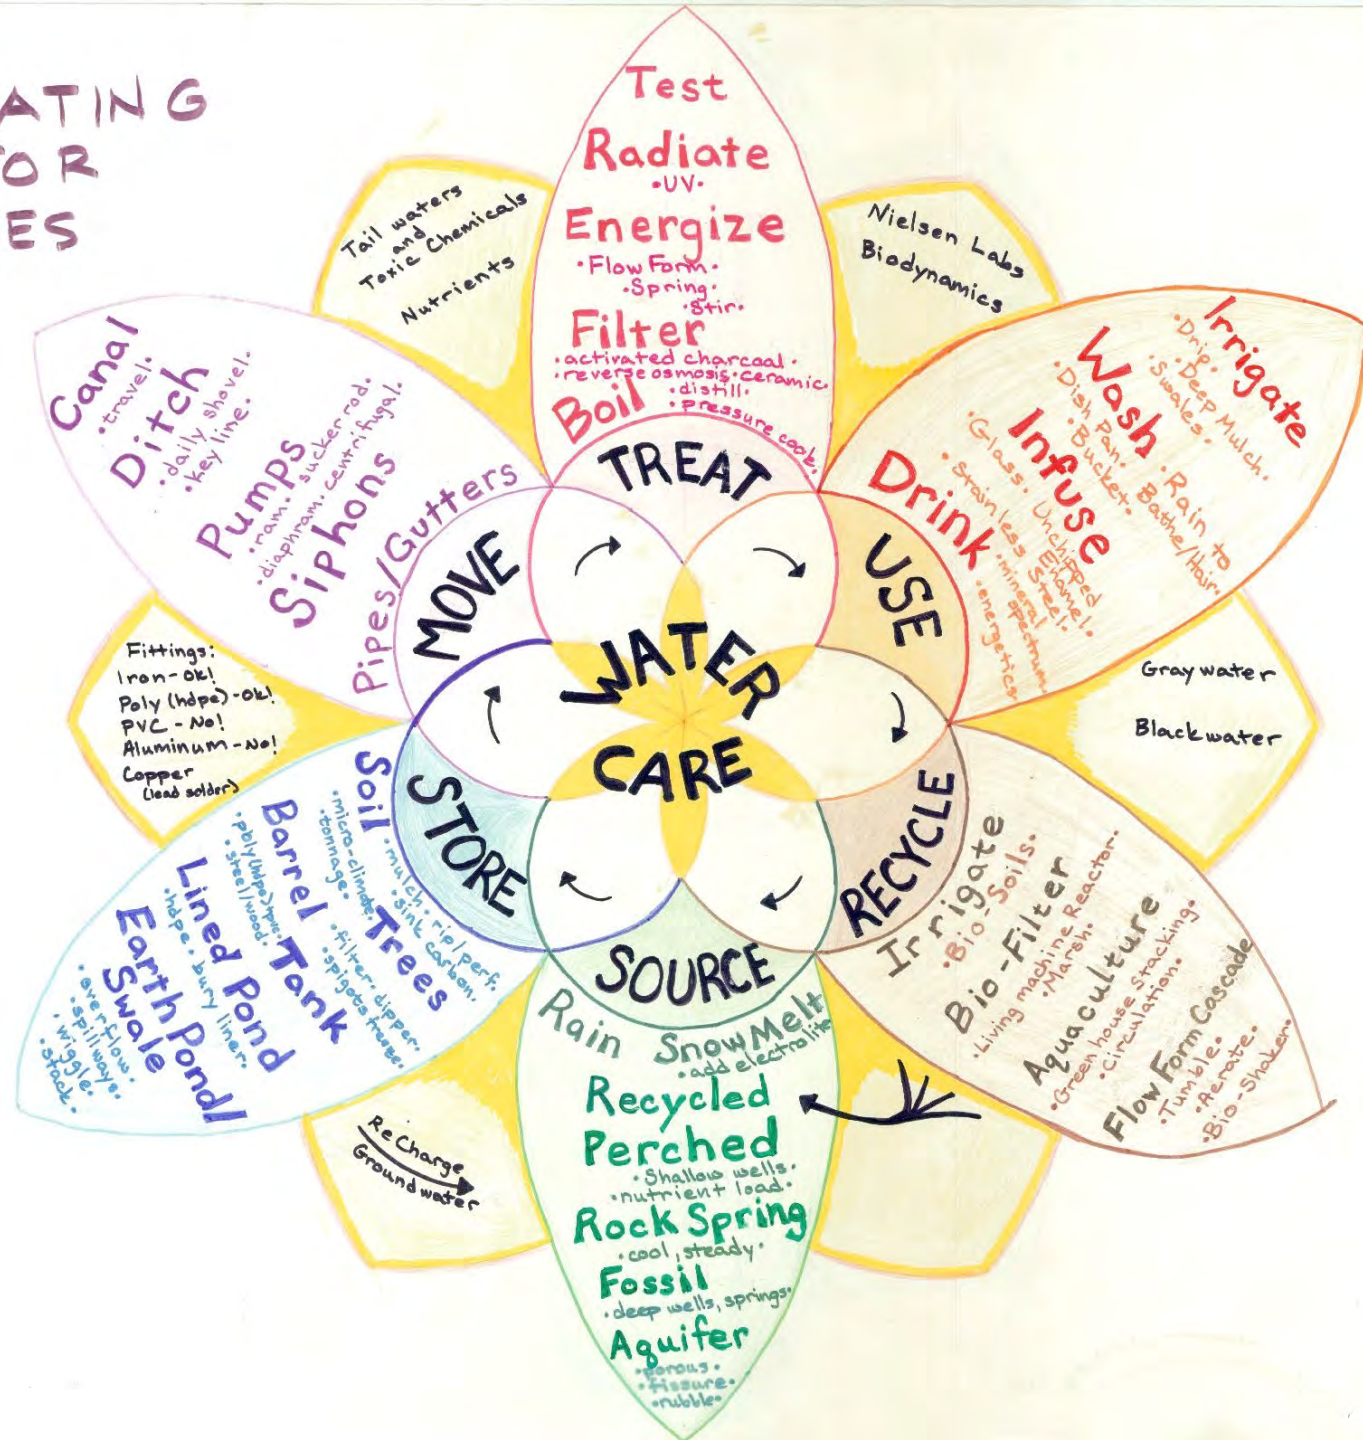 ATING
OR
ES
Test
Radiate
•UV•
Energize
•Flow Form•
•Spring•
•Stir•
Filter
•activated charcoal•
•reverse osmosis•ceramic
•distill•
Boil
•pressure cook•
TREAT
Nielsen Labs
Biodynamics
Irrigate
•Drip•
•Deep Mulch•
•Swales•
Wash
•Rain to
Bathe/Hair•
•Dish Pan•
•Bucket•
Infuse
•Glass• Unchipped
Enamel•
•Stainless Steel•
Drink
•mineral
spectrum•
•energetics
USE
Gray water
Blackwater
RECYCLE
Irrigate
•Bio-Soils•
Bio-Filter
•Living machine Reactor•
•Marsh•
Aquaculture
•Green house stacking•
•Circulation•
Flow Form Cascade
•Tumble•
•Aerate•
•Bio-Shaker•
SOURCE
Rain Snow Melt
•add electrolite
Recycled
Perched
•Shallow wells•
•nutrient load•
Rock Spring
•cool, steady•
Fossil
•deep wells, springs•
Aquifer
•porous•
•fissure•
•rubble•
ReCharge
Groundwater
STORE
Soil
•mulch•rip/perf.
•sink carbon•
Trees
•micro-climate•
•tonnage•
Barrel Tank
•filter•dipper•
•spigots
•poly(hdpe)
•steel/wood•
Lined Pond
•hdpe•bury liner•
Earth Pond/
Swale
•overflow•
•spillways•
•wiggle•
•stack•
Fittings:
Iron-ok!
Poly (hdpe)-ok!
PVC - No!
Aluminum-No!
Copper
(lead solder)
MOVE
Pipes/Gutters
Siphons
Pumps
•ram•sucker rod•
•diaphram•centrifugal•
Ditch
•daily shovel•
•key line•
Canal
•travel•
Tail waters
and
Toxic Chemicals
Nutrients
WATER
CARE